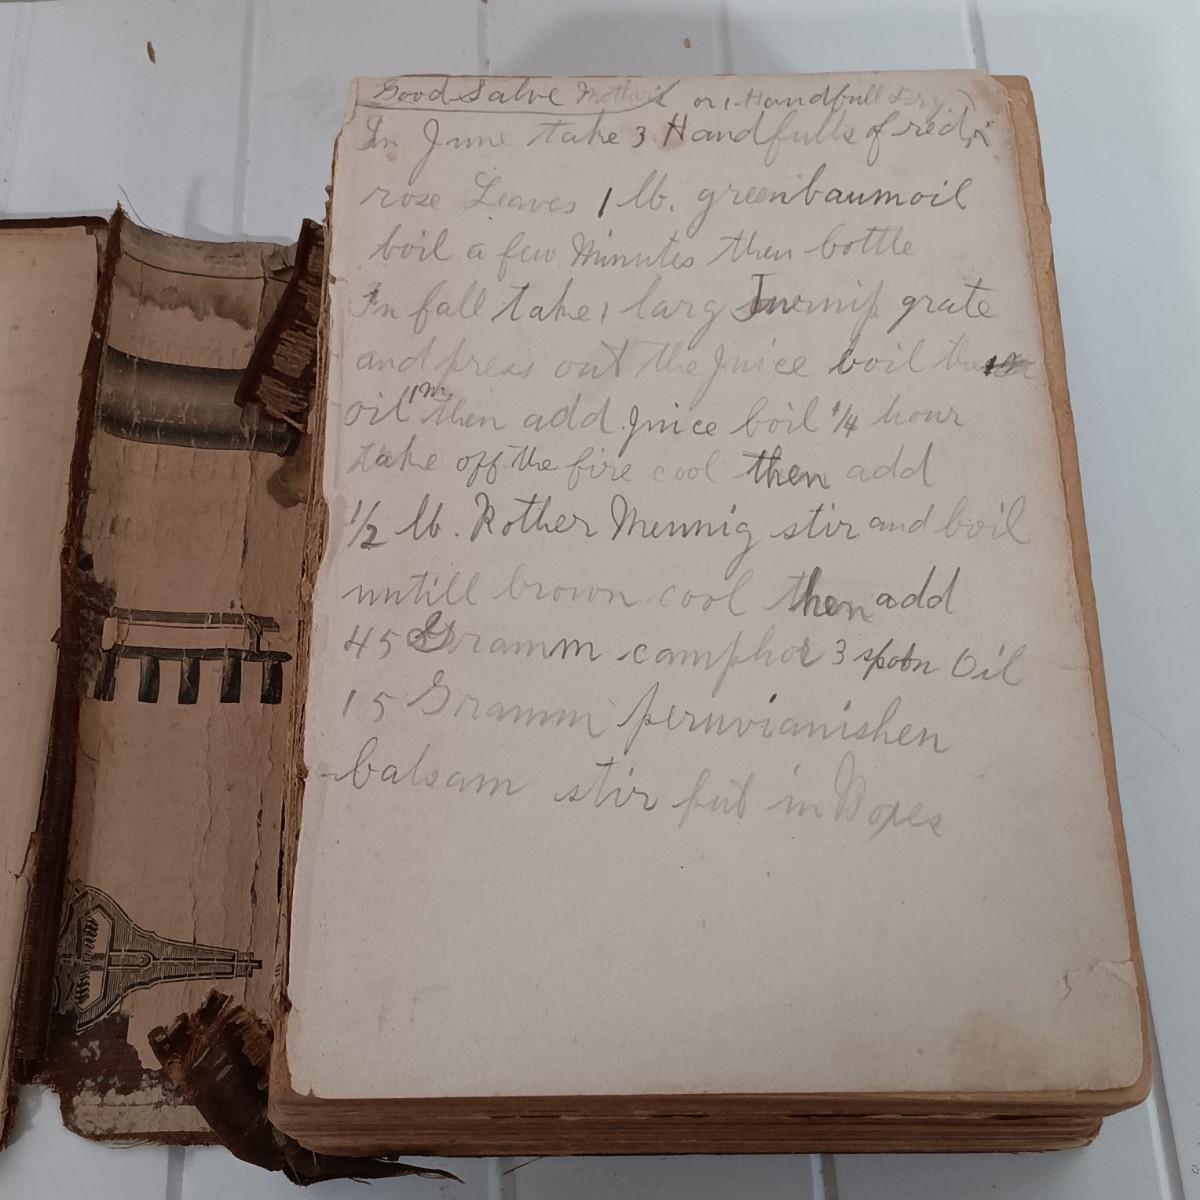 Good Salve Mother's or 1 Handfull Dry.
In June take 3 Handfulls of red
rose Leaves 1 lb. greenbaumoil
boil a few Minutes then bottle
In fall take 1 larg Turnip grate
and press out the Juice boil the
oil 1 m then add Juice boil 1/4 hour
take off the fire cool then add
1/2 lb. Rother Mennig stir and boil
untill brown cool then add
45 Gramm camphor 3 spoon Oil
15 Gramm peruvianishen
balsam stir put in Boxes